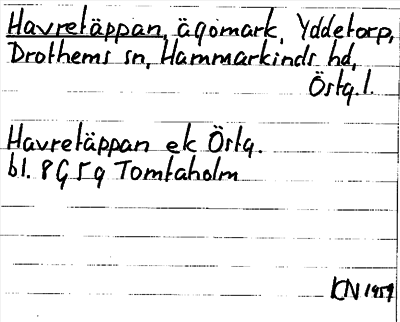 Havretäppan, ägomark, Yddetorp,
Drothems sn, Hammarkinds hd,
Östg.l.
Havretäppan ek Östg.
bl. 8G5g Tomtaholm
KN 1959